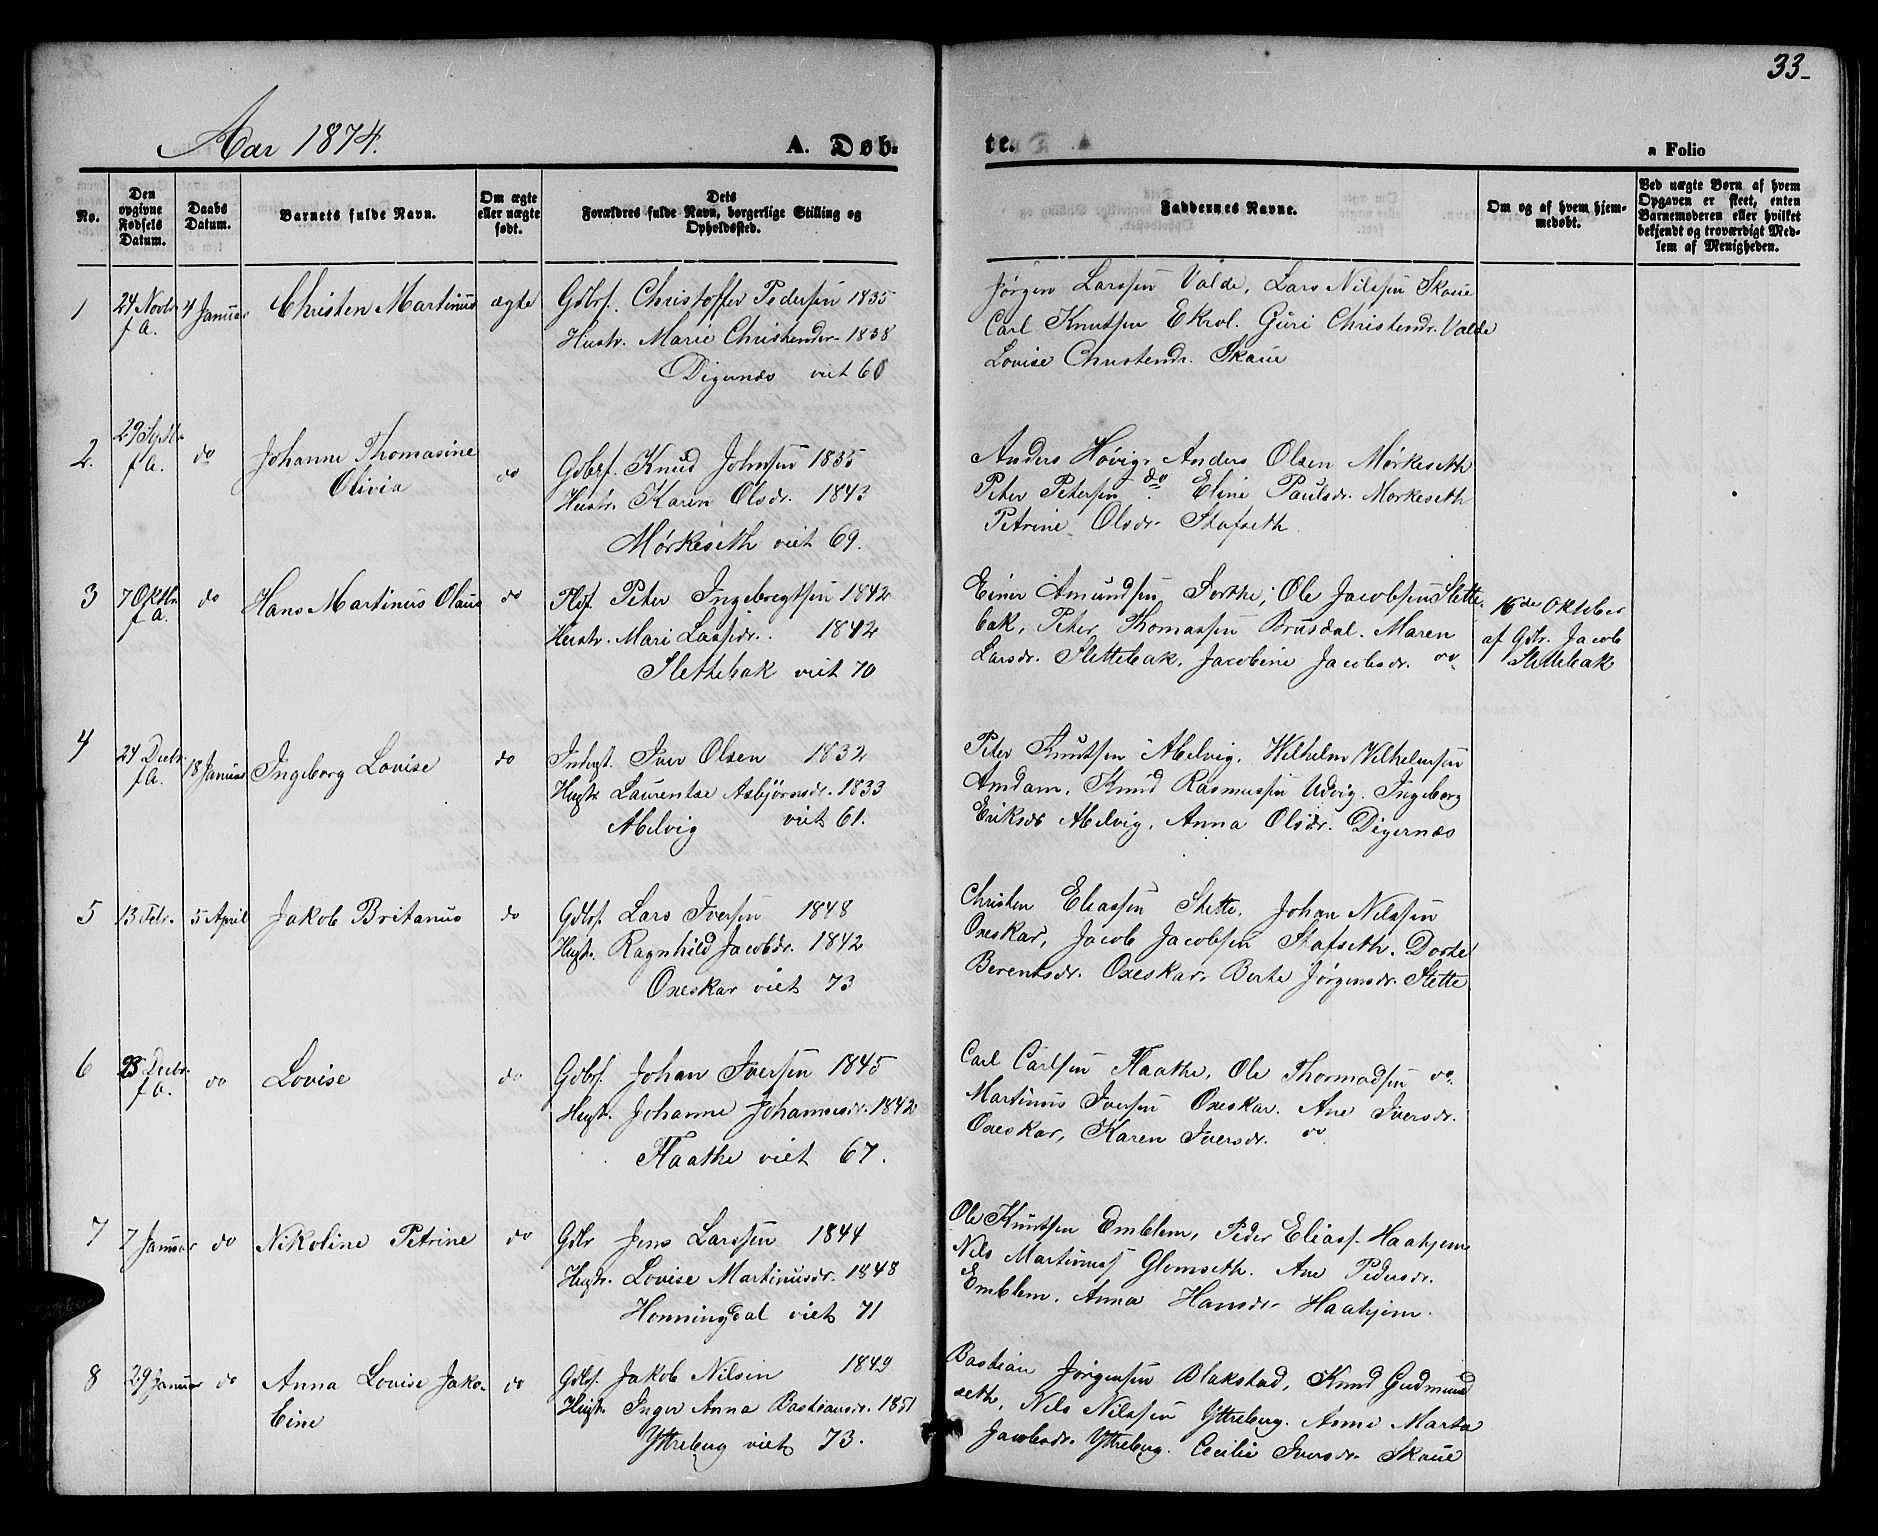 33
Aar 1874.
A. Døb-
te.
a Folio
No.
Den opgivne Fødsels Datum.
Daabs Datum.
Barnets fulde Navn.
Om ægte eller uægte født.
Dets Forældres fulde Navn, borgerlige Stilling og Opholdssted.
Faddernes Navne.
Om og af hvem hjemmedøbt.
Ved uægte Børn af hvem Opgaven er skeet, enten Barnemoderen eller hvilket bekjendt og troværdigt Medlem af Menigheden.
1
24 Novbr
f A.
4 Januar
Christen Martinus
ægte
Gdbrf. Christoffer Pedersen 1835
Hustr. Marie Christendr. 1838
Digernæs viet 60
Jørgen Larssen Valde, Lars Nilssen Skaue
Carl Knutsen Ekrol. Guri Christendr. Valde
Lovise Christendr. Skaue
2.
29 Septbr
f A.
do
Johanne Thomasine
Olivia
do
Gdbrf. Knud Johnsen 1835
Hustr. Karen Olsdr. 1843
Mørkeseth viet 69.
Anders Høvig, Anders Olsen Mørkeseth
Peter Petersen do. Eline Paulsdr. Mørkeseth
Petrine Olsdr. Stafseth
3
7 Oktbr
f A.
do
Hans Martinus Olaus
do
Plsf. Peter Ingebregtsen 1842
Hustr. Mari Larsdr. 1842
Slettebak viet 70
Einer Amundsen Sorthe, Ole Jacobsen Slette-
bak, Peter Thomassen Brusdal. Maren
Larsdr. Slettebak, Jacobine Jacobsdr. do.
16de Oktober
af Gdbr. Jacob
Slettebak
4
24 Decbr
f A.
18 Januar
Ingeborg Lovise
do
Inderst. Iver Olsen 1832
Hustr. Laurentse Asbjørnsdr. 1833
Abelvig viet 61.
Peter Knutsen Abelvig, Wilhelm Vilhelmsen
Amdam, Knud Rasmussen Udvig. Ingeborg
Eriksdr Abelvig, Anna Olsdr. Digernæs
5
13 Febr.
5 April
Jakob Britanus
do
Gdbrf. Lars Iversen 1848
Hustr. Ragnhild Jacobdr. 1842
Oxeskar viet 73
Christen Eliassen Slette, Johan Nilssen
Oxeskar, Jacob Jacobsen Stafseth. Dorte
Berentsdr. Oxeskar, Berte Jørgensdr. Slette
6
Decbr.
f A.
do
Lovise
do
Gdbrf. Johan Iversen 1845
Hustr. Johanne Johannesdr. 1842
Flaathe viet 67.
Carl Carlsen Flaathe, Ole Thormodsen do.
Martinus Iversen Oxeskar. Ane Iversdr.
Oxeskar, Karen Iversdr. do
7
7 Januar
do
Nikoline Petrine
do
Gdbr Jens Larssen 1844
Hustr. Lovise Martinusdr. 1848
Honningdal viet 71
Ole Knutsen Emblem, Peder Eliass. Haahjem
Nils Martinuss Glomseth. Ane Pedersdr.
Emblem, Anna Hansdr. Haahjem.
8
29 Januar
do
Anna Lovise Jako-
bine
do
Gdbf. Jakob Nilsen 1849
Hustr. Inger Anna Bastiansdr. 1851
Yttreberg viet 73.
Bastian Jørgensen Blakstad, Knud Gudmund
seth, Nils Nilssen Yttreberg. Anne Marta
Jacobsdr. Yttreberg. Cecilie Iversdr. Skaue